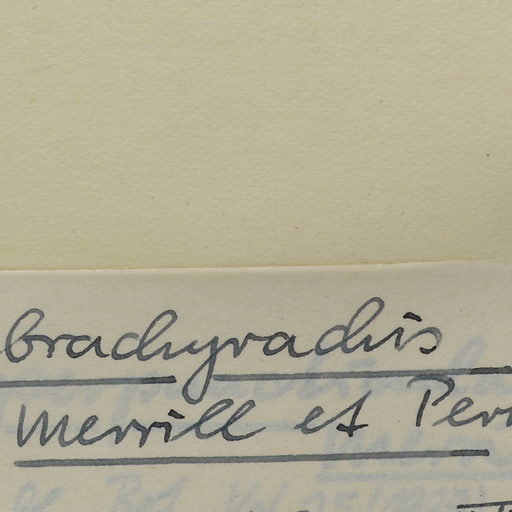 brachyradus
Merrill et Per